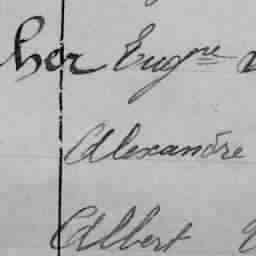 her Eugne
Alexandre
Albert